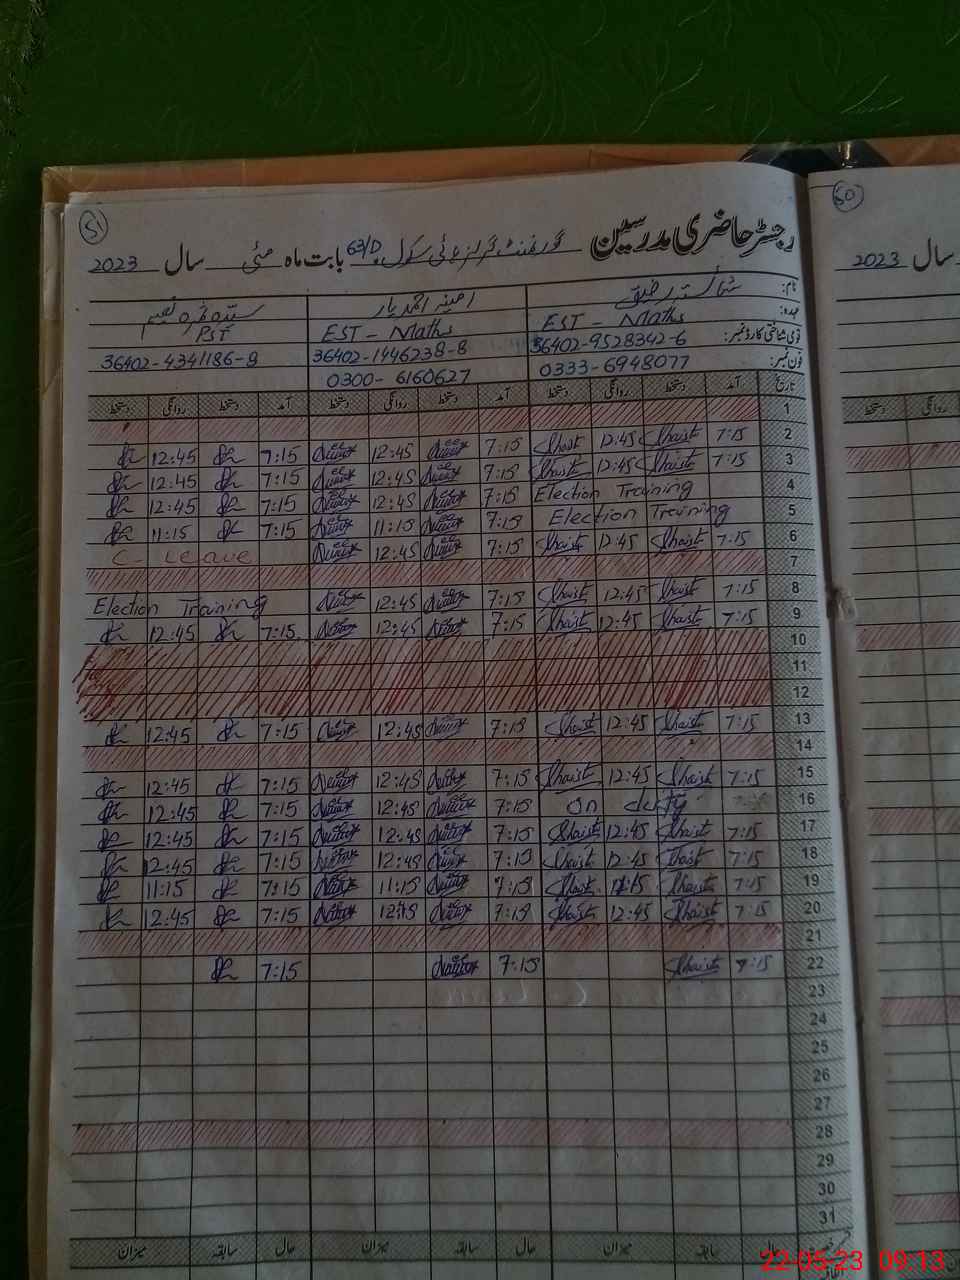 51
رجسٹر حاضری مدرسین گورنمنٹ گرلز ہائی سکول 63/D بابت ماہ مئی سال 2023
نام: شائستہ رفیق امینہ احمد یار سیدہ قمرہ نعیم
عہدہ: EST - Maths EST - Maths PST
قومی شناختی کارڈ نمبر: 36402-9528342-6 36402-1446238-8 36402-4341186-8
فون نمبر: 0333-6948077 0300-6160627
تاریخ آمد دستخط روانگی دستخط آمد دستخط روانگی دستخط آمد دستخط روانگی دستخط
1
2 7:15 Shaist 12:45 Shaist 7:15 12:45 7:15 12:45
3 7:15 Shaist 12:45 Shaist 7:15 12:45 7:15 12:45
4 Election Training 7:15 12:45 7:15 12:45
5 Election Training 7:15 11:15 7:15 11:15
6 7:15 Shaist 12:45 Shaist 7:15 12:45 C- Leave
7
8 7:15 Shaist 12:45 Shaist 7:15 12:45 Election Training
9 7:15 Shaist 12:45 Shaist 7:15 12:45 7:15 12:45
10
11
12
13 7:15 Shaist 12:45 Shaist 7:15 12:45 7:15 12:45
14
15 7:15 Shaist 12:45 Shaist 7:15 12:45 7:15 12:45
16 on duty 7:15 12:45 7:15 12:45
17 7:15 Shaist 12:45 Shaist 7:15 12:45 7:15 12:45
18 7:15 Shaist 12:45 Shaist 7:15 12:45 7:15 12:45
19 7:15 Shaist 11:15 Shaist 7:15 11:15 7:15 11:15
20 7:15 Shaist 12:45 Shaist 7:15 7:15 12:45
21
22 7:15 Shaist 7:15 7:15
23
24
25
26
27
28
29
30
31
حال سابقہ میزان حال سابقہ میزان حال سابقہ میزان
50
سال 2023
روانگی دستخط
22-05-23 09:13